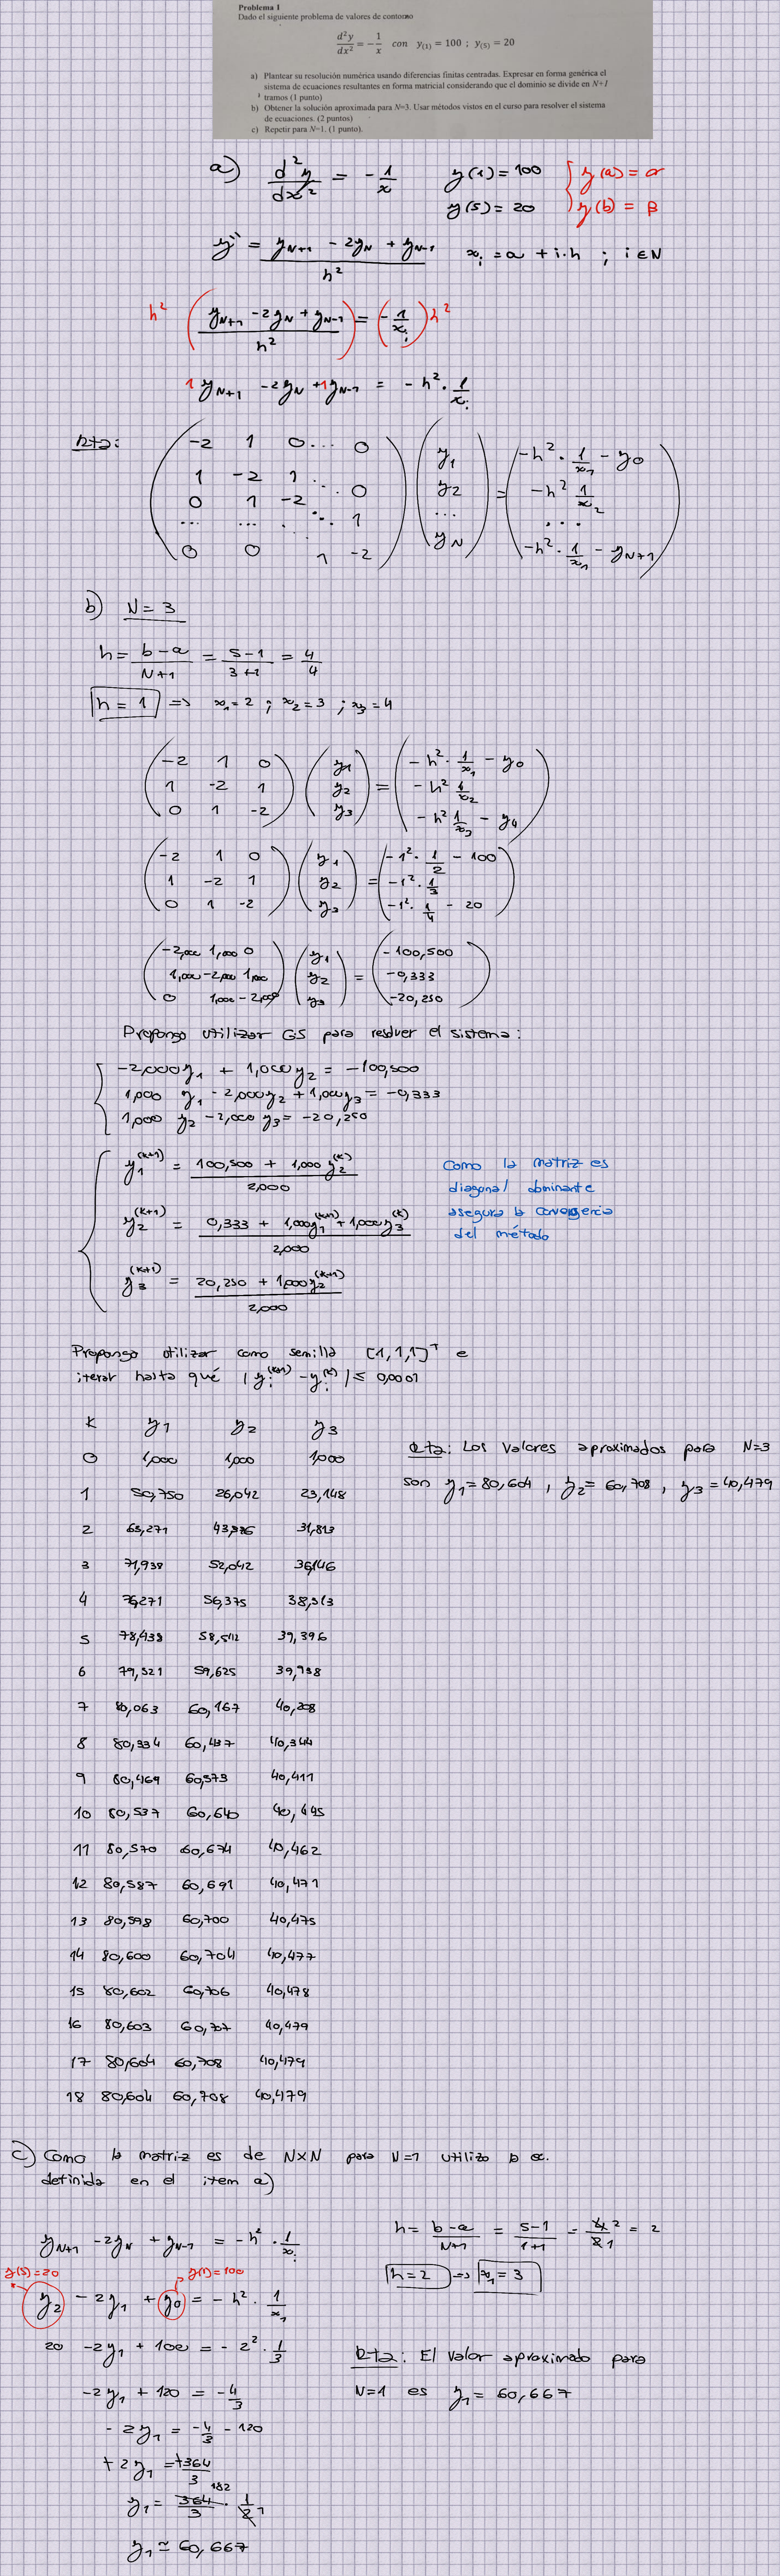 Problema 1
Dado el siguiente problema de valores de contorno
d²y/dx² = -1/x con y(1) = 100 ; y(5) = 20
a) Plantear su resolución numérica usando diferencias finitas centradas. Expresar en forma genérica el
sistema de ecuaciones resultantes en forma matricial considerando que el dominio se divide en N+1
tramos (1 punto)
b) Obtener la solución aproximada para N=3. Usar métodos vistos en el curso para resolver el sistema
de ecuaciones. (2 puntos)
c) Repetir para N=1. (1 punto).
a) d²y/dx² = -1/x y(1)=100 y(a)=α
y(5)=20 y(b)=β
y'' = (yN+1 - 2yN + yN-1)/h² xi = a + i.h ; i∈N
h² ((yN+1 - 2yN + yN-1)/h²) = (-1/xi) h²
1 yN+1 - 2yN + 1yN-1 = -h² . 1/xi
Rta:
-2 1 0 ... 0 y1 -h² . 1/x1 - y0
1 -2 1 ... y2 = -h² 1/x2
0 1 -2 ... 0 ... ...
... ... ... 1
0 0 1 -2 yN -h² . 1/x1 - yN+1
b) N = 3
h = (b-a)/(N+1) = (5-1)/(3+1) = 4/4
h = 1 => x1=2 ; x2=3 ; x3=4
-2 1 0 y1 -h² . 1/x1 - y0
1 -2 1 y2 = -h² 1/x2
0 1 -2 y3 -h² 1/x3 - y4
-2 1 0 y1 -1² . 1/2 - 100
1 -2 1 y2 = -1² . 1/3
0 1 -2 y3 -1² . 1/4 - 20
-2,000 1,000 0 y1 -100,500
1,000 -2,000 1,000 y2 = -0,333
0 1,000 -2,000 y3 -20,250
Propongo utilizar GS para resolver el sistema:
-2,000y1 + 1,000y2 = -100,500
1,000 y1 - 2,000y2 + 1,000y3 = -0,333
1,000 y2 - 2,000 y3 = -20,250
y1(k+1) = (100,500 + 1,000y2(k))/2,000
y2(k+1) = (0,333 + 1,000y1(k+1) + 1,000y3(k))/2,000
y3(k+1) = (20,250 + 1,000y2(k+1))/2,000
Como la matriz es
diagonal dominante
asegura la convergencia
del método
Propongo utilizar como semilla [1,1,1]ᵀ e
iterar hasta qué |yi(k+1) - yi(k)| ≤ 0,0001
K y1 y2 y3
0 1,000 1,000 1,000
1 50,750 26,042 23,148
2 63,271 31,813
3 71,938 52,042 36,146
4 76,271 56,375 38,313
5 78,438 58,542 39,396
6 79,521 59,625 39,938
7 80,063 60,167 40,208
8 80,334 60,437 40,344
9 80,469 60,573 40,411
10 80,537 60,640 40,445
11 80,570 60,674 40,462
12 80,587 60,691 40,471
13 80,598 60,700 40,475
14 80,600 60,704 40,477
15 80,602 60,706 40,478
16 80,603 60,707 40,479
17 80,604 60,708 40,479
18 80,604 60,708 40,479
Rta: Los valores aproximados para N=3
son y1=80,604 , y2= 60,708 , y3 = 40,479
c) Como la matriz es de N×N para N=1 utilizo la ec.
definida en el item a)
yN+1 - 2yN + yN-1 = -h² . 1/xi
y(5)=20 y(1)=100
y2 - 2y1 + y0 = -h² . 1/x1
20 - 2y1 + 100 = -2² . 1/3
-2y1 + 120 = -4/3
-2y1 = -4/3 - 120
+2y1 = +364/3
182
y1 = 364/3 . 1/2 1
y1 ≃ 60,667
h = (b-a)/(N+1) = (5-1)/(1+1) = 4/2 2 1 = 2
h=2 => x1 = 3
Rta: El valor aproximado para
N=1 es y1 = 60,667